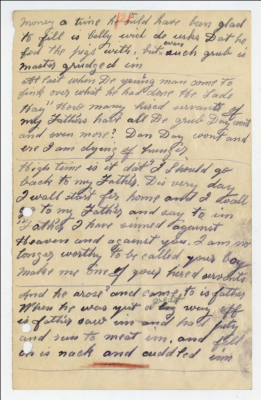 money a time he ould have been glad
to fill is belly wid de usks Dat he
fed the pigs with, but even such grub is
master grudged im
At last when De young man come to
tink over what he had done He Sade
How many hired servants of
my Fathers hath all De grub Day want
and even more? Dan Day want and
ere I am dying of hunger
High time is it dat I should go
back to my Father. Dis very day
I wall start for home and I wall
go to my Father and say to im
Father I have sinned against
Heaven and against you. I am no
longer worthy to be called your boy
make me one of your hired servants
And he arose and came to is father
When he was yit a great way off
is father saw im and had pity
and run to meat im, and fell
on is nack and cuddled im